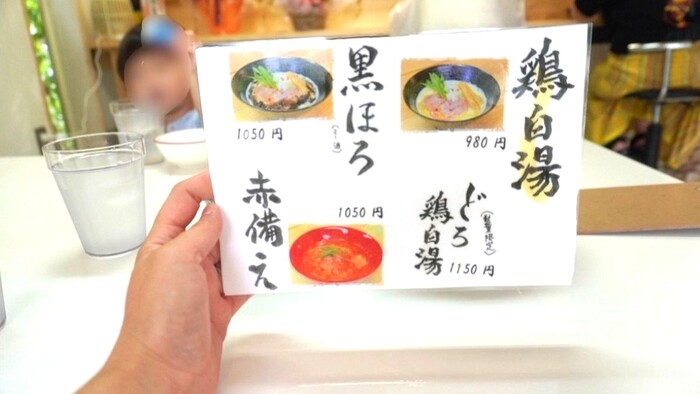 鶏白湯
980 円
どろ
鶏白湯
(数量限定)
1150 円
黒ほろ
1050 円
赤備え
1050 円